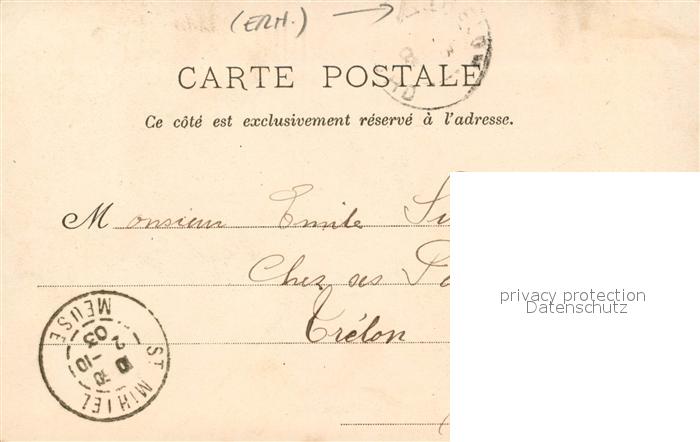 (ERH.)
CARTE POSTALE
Ce côté est exclusivement réservé à l'adresse.
Monsieur Emile
Chez ses
privacy protection
Datenschutz
Trélon
ST MIHIEL
MEUSE
03